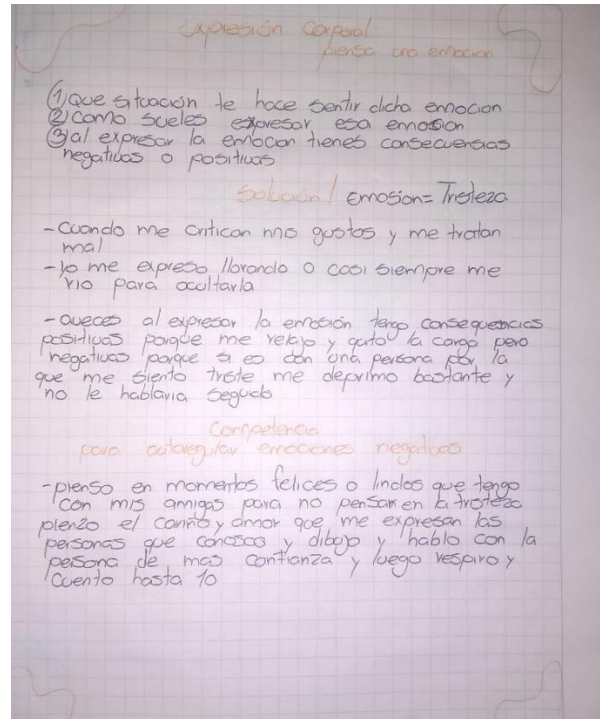 Expresión Corporal
piensa una emocion
① Que situación te hace sentir dicha emocion
② Como sueles expresar esa emosion
③ al expresar la emocion tienes consecuensias
negativas o positivas
Solución / Emosion = Tristeza
- Cuando me critican mis gustos y me tratan
mal
- Yo me expreso llorando o casi siempre me
rio para ocultarla
- aveces al expresar la emosión tengo consequencias
positivas porque me relajo y quito la carga pero
negativas porque si es con una persona por la
que me siento triste me deprimo bastante y
no le hablaria seguido
Competencia
para autoregular emociones negativas
- pienso en momentos felices o lindos que tengo
con mis amigas para no pensar en la tristeza
pienzo el cariño y amor que me expresan las
personas que conosco y dibujo y hablo con la
persona de mas confianza y luego respiro y
cuento hasta 10